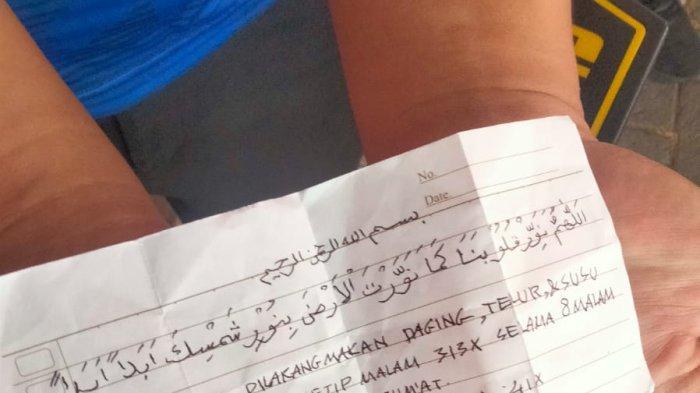 No.
Date
بسم الله الرحمن الرحيم
اَللَّهُمَّ نَوِّرْ قُلُوْبَنَا كَمَا نَوَّرْتَ الْأَرْضَ بِنُوْرِ شَمْسِكَ أَبَدًا أَبَدًا
DILARANG MAKAN DAGING, TELUR, & SUSU
TIP MALAM 313X SELAMA 8 MALAM
UM'AT.
41X